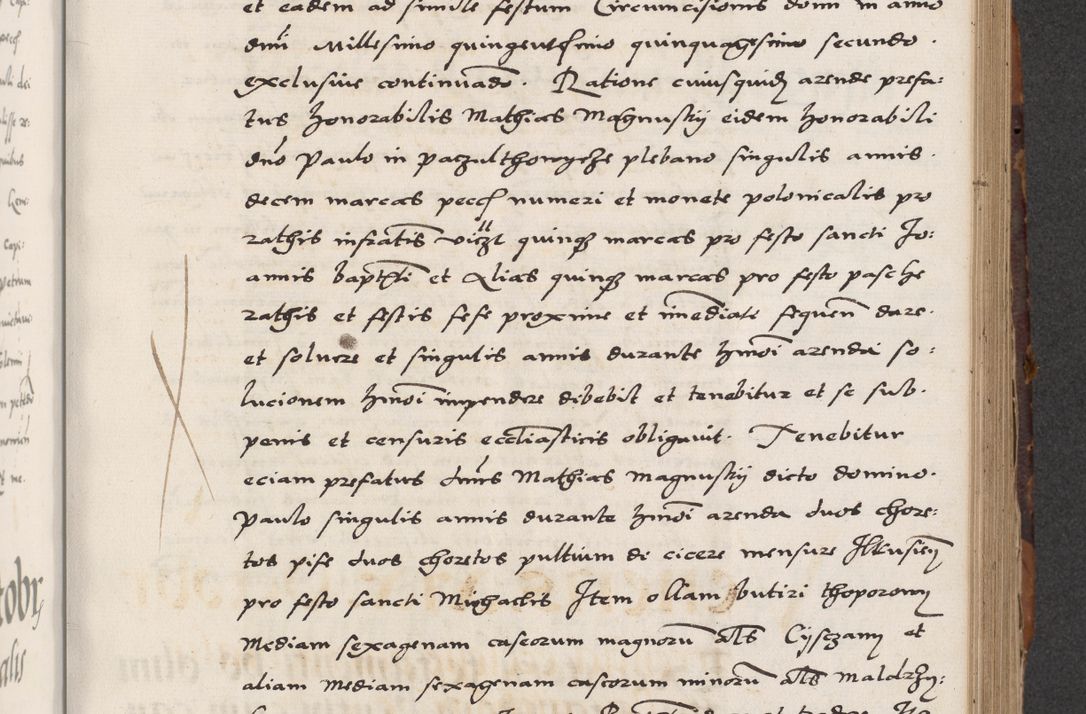 et eadem ad simile festum Circumcisionis domi in anno
dnī Millesimo quingentesimo quinquagesimo secundo.
exclusive continuādo. Ratione cuiusquidē arende prefa:
tus honorabilis Mathias Magnuskij eidem honorabili
dnō Paulo in Paczulthowycze plebano singulis annis.
decem marcas pecc numeri et monete polonicalis pro
rathis infratis viczlt quinqȝ marcas pro festo sancti Jo:
annis baptīti et Alias quinqȝ marcas pro festo pasche
rathis et festis sese proxime et imēdiate sequen̄ dare.
et soluere et singulis annis durante hmōi arenda so:
lucionem hmōi impendere debebit et tenebitur et se sub.
penis et censuris ecclīasticis obligauit. Tenebitur
eciam prefatus dnūs Mathias Magnuskij dicto domino.
Paulo singulis annis durante hmōi arenda duos chore:
tos pise duos choretos pultium de cicere mensure Ilkusien̄
pro festo sancti Michaelis Item ollam butiri thoporowy
Mediam sexagenam caseorum magnorū als̄ Cysczany et
aliam mediam sexagenam caseorum minorū als̄ maldrzy: